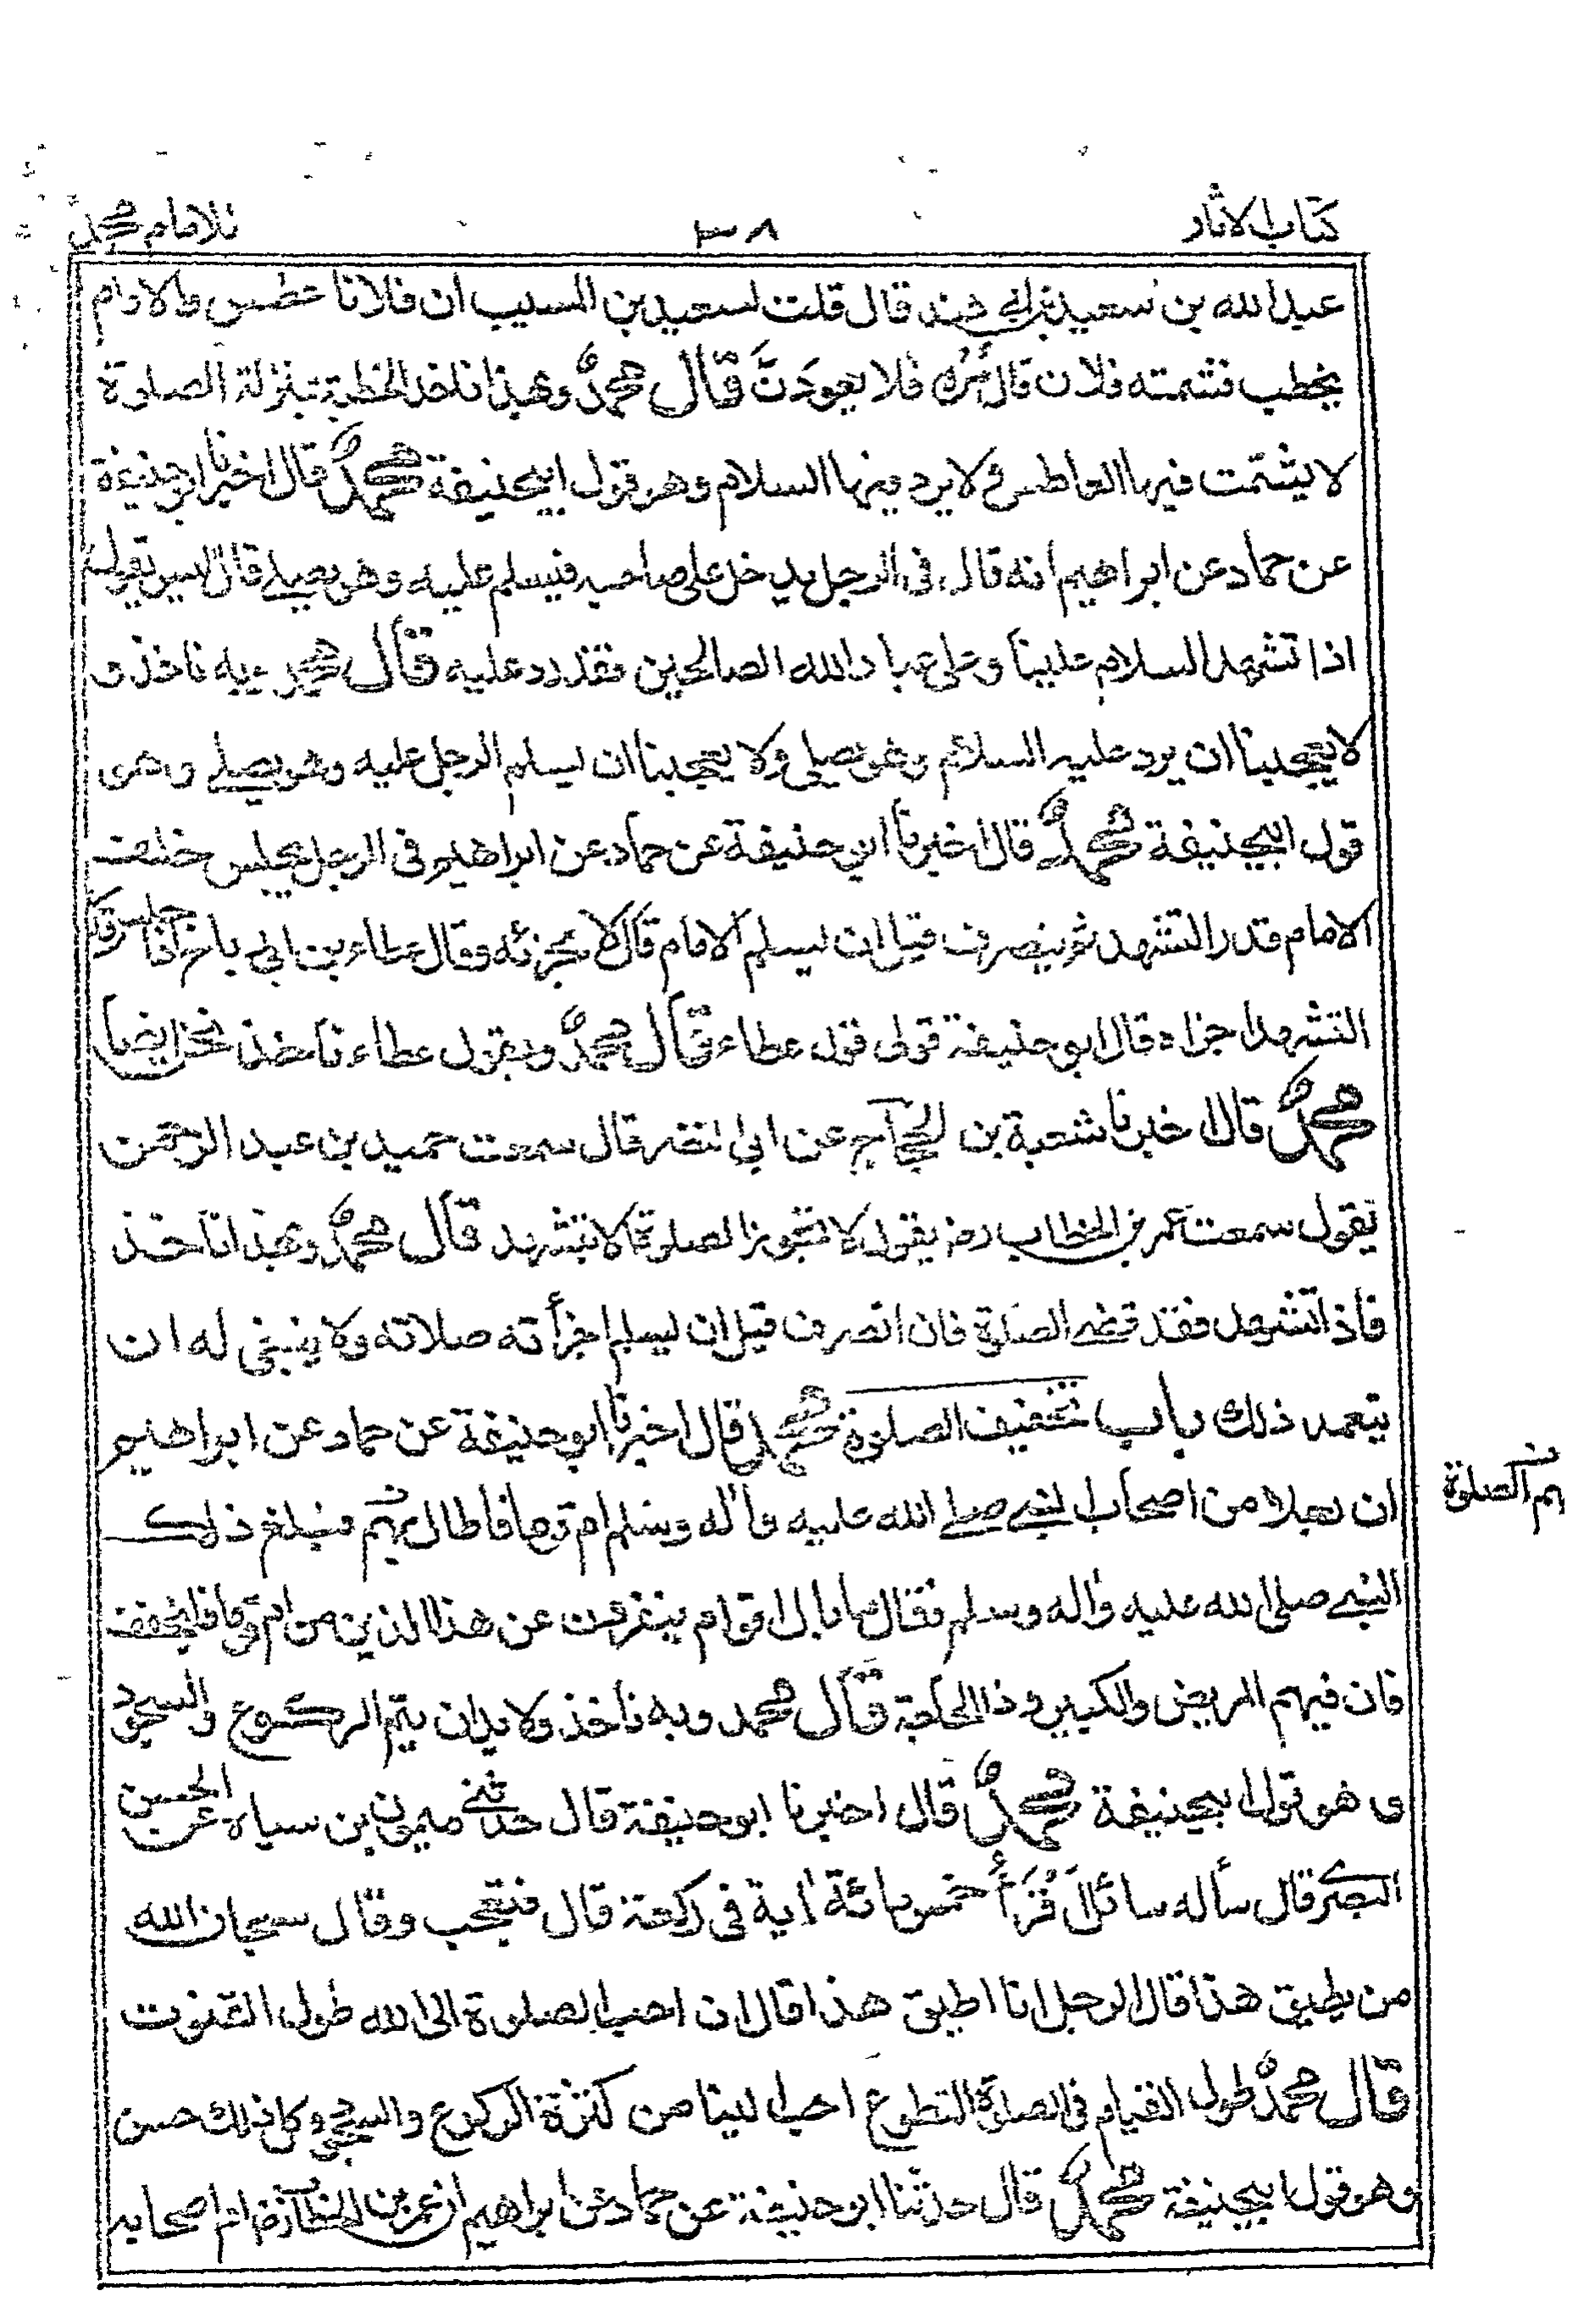 كتاب الاثار
٣٨
للامام محمدؒ
عبد الله بن سعيد بن ابي هند قال قلت لسعيد بن المسيب ان فلانا عطس والامام
يخطب فشمته فلان قال مُرْه فلا يعودَنَّ قال محمدؒ وبهذا ناخذ الخطبة بمنزلة الصلوة
لا يشمّت فيها العاطس ولا يرد فيها السلام وهو قول ابيحنيفة محمدؒ قال اخبرنا ابوحنيفة
عن حماد عن ابراهيم انه قال في الرجل يدخل على صاحبه فيسلم عليه وهو يصلي قال اليس يقول
اذا تشهد السلام علينا وعلى عباد الله الصالحين فقد رد عليه قال محمد وبه ناخذ و
لا يعجبنا ان يرد عليه السلام وهو يصلي ولا يعجبنا ان يسلم الرجل عليه وهو يصلي وهو
قول ابيحنيفة محمدؒ قال اخبرنا ابو حنيفة عن حماد عن ابراهيم في الرجل يجلس خلف
الامام قدر التشهد ثم ينصرف قبل ان يسلم الامام قال لا يجزئه وقال عطاء بن ابي رباح اذا جلس قدر
التشهد اجزاه قال ابو حنيفة قولى قول عطاء قال محمدؒ وبقول عطاء ناخذ نحن ايضا
محمدؒ قال اخبرنا شعبة بن الحجاج عن ابي النضر قال سمعت حميد بن عبد الرحمن
يقول سمعت عمر بن الخطاب رضـ يقول لا تجوز الصلوة الا بتشهد قال محمدؒ وبهذا ناخذ
فاذا تشهد فقد قضى الصلوة فان انصرف قبل ان يسلم اجزأته صلاته ولا ينبغي له ان
يتعمد ذلك باب تخفيف الصلوة محمد قال اخبرنا ابو حنيفة عن حماد عن ابراهيم
ان رجلا من اصحاب النبي صلى الله عليه واٰله وسلم ام قوما فاطال بهم فبلغ ذلك
بهم الصلوة
النبي صلى الله عليه واٰله وسلم فقال ما بال اقوام ينفرون عن هذا الدين من ام قوما فليخفف
فان فيهم المريض والكبير وذا الحاجة قال محمد وبه ناخذ ولا بد ان يتم الركوع والسجود
و هو قول ابيحنيفة محمدؒ قال اخبرنا ابو حنيفة قال حدثني ميمون بن سياه عن الحسن
البصري قال سأله سائل أَقْرَأُ خمس مائة اٰية في ركعة قال فتعجب وقال سبحان الله
من يطيق هذا قال الرجل انا اطيق هذا قال ان احب الصلوة الى الله طول القنوت
قال محمدؒ طول القيام في الصلوة التطوع احب الينا من كثرة الركوع والسجود وكل ذلك حسن
وهو قول ابيحنيفة محمدؒ قال حدثنا ابو حنيفة عن حماد عن ابراهيم ان عمر بن الخطاب رضـ ام اصحابه